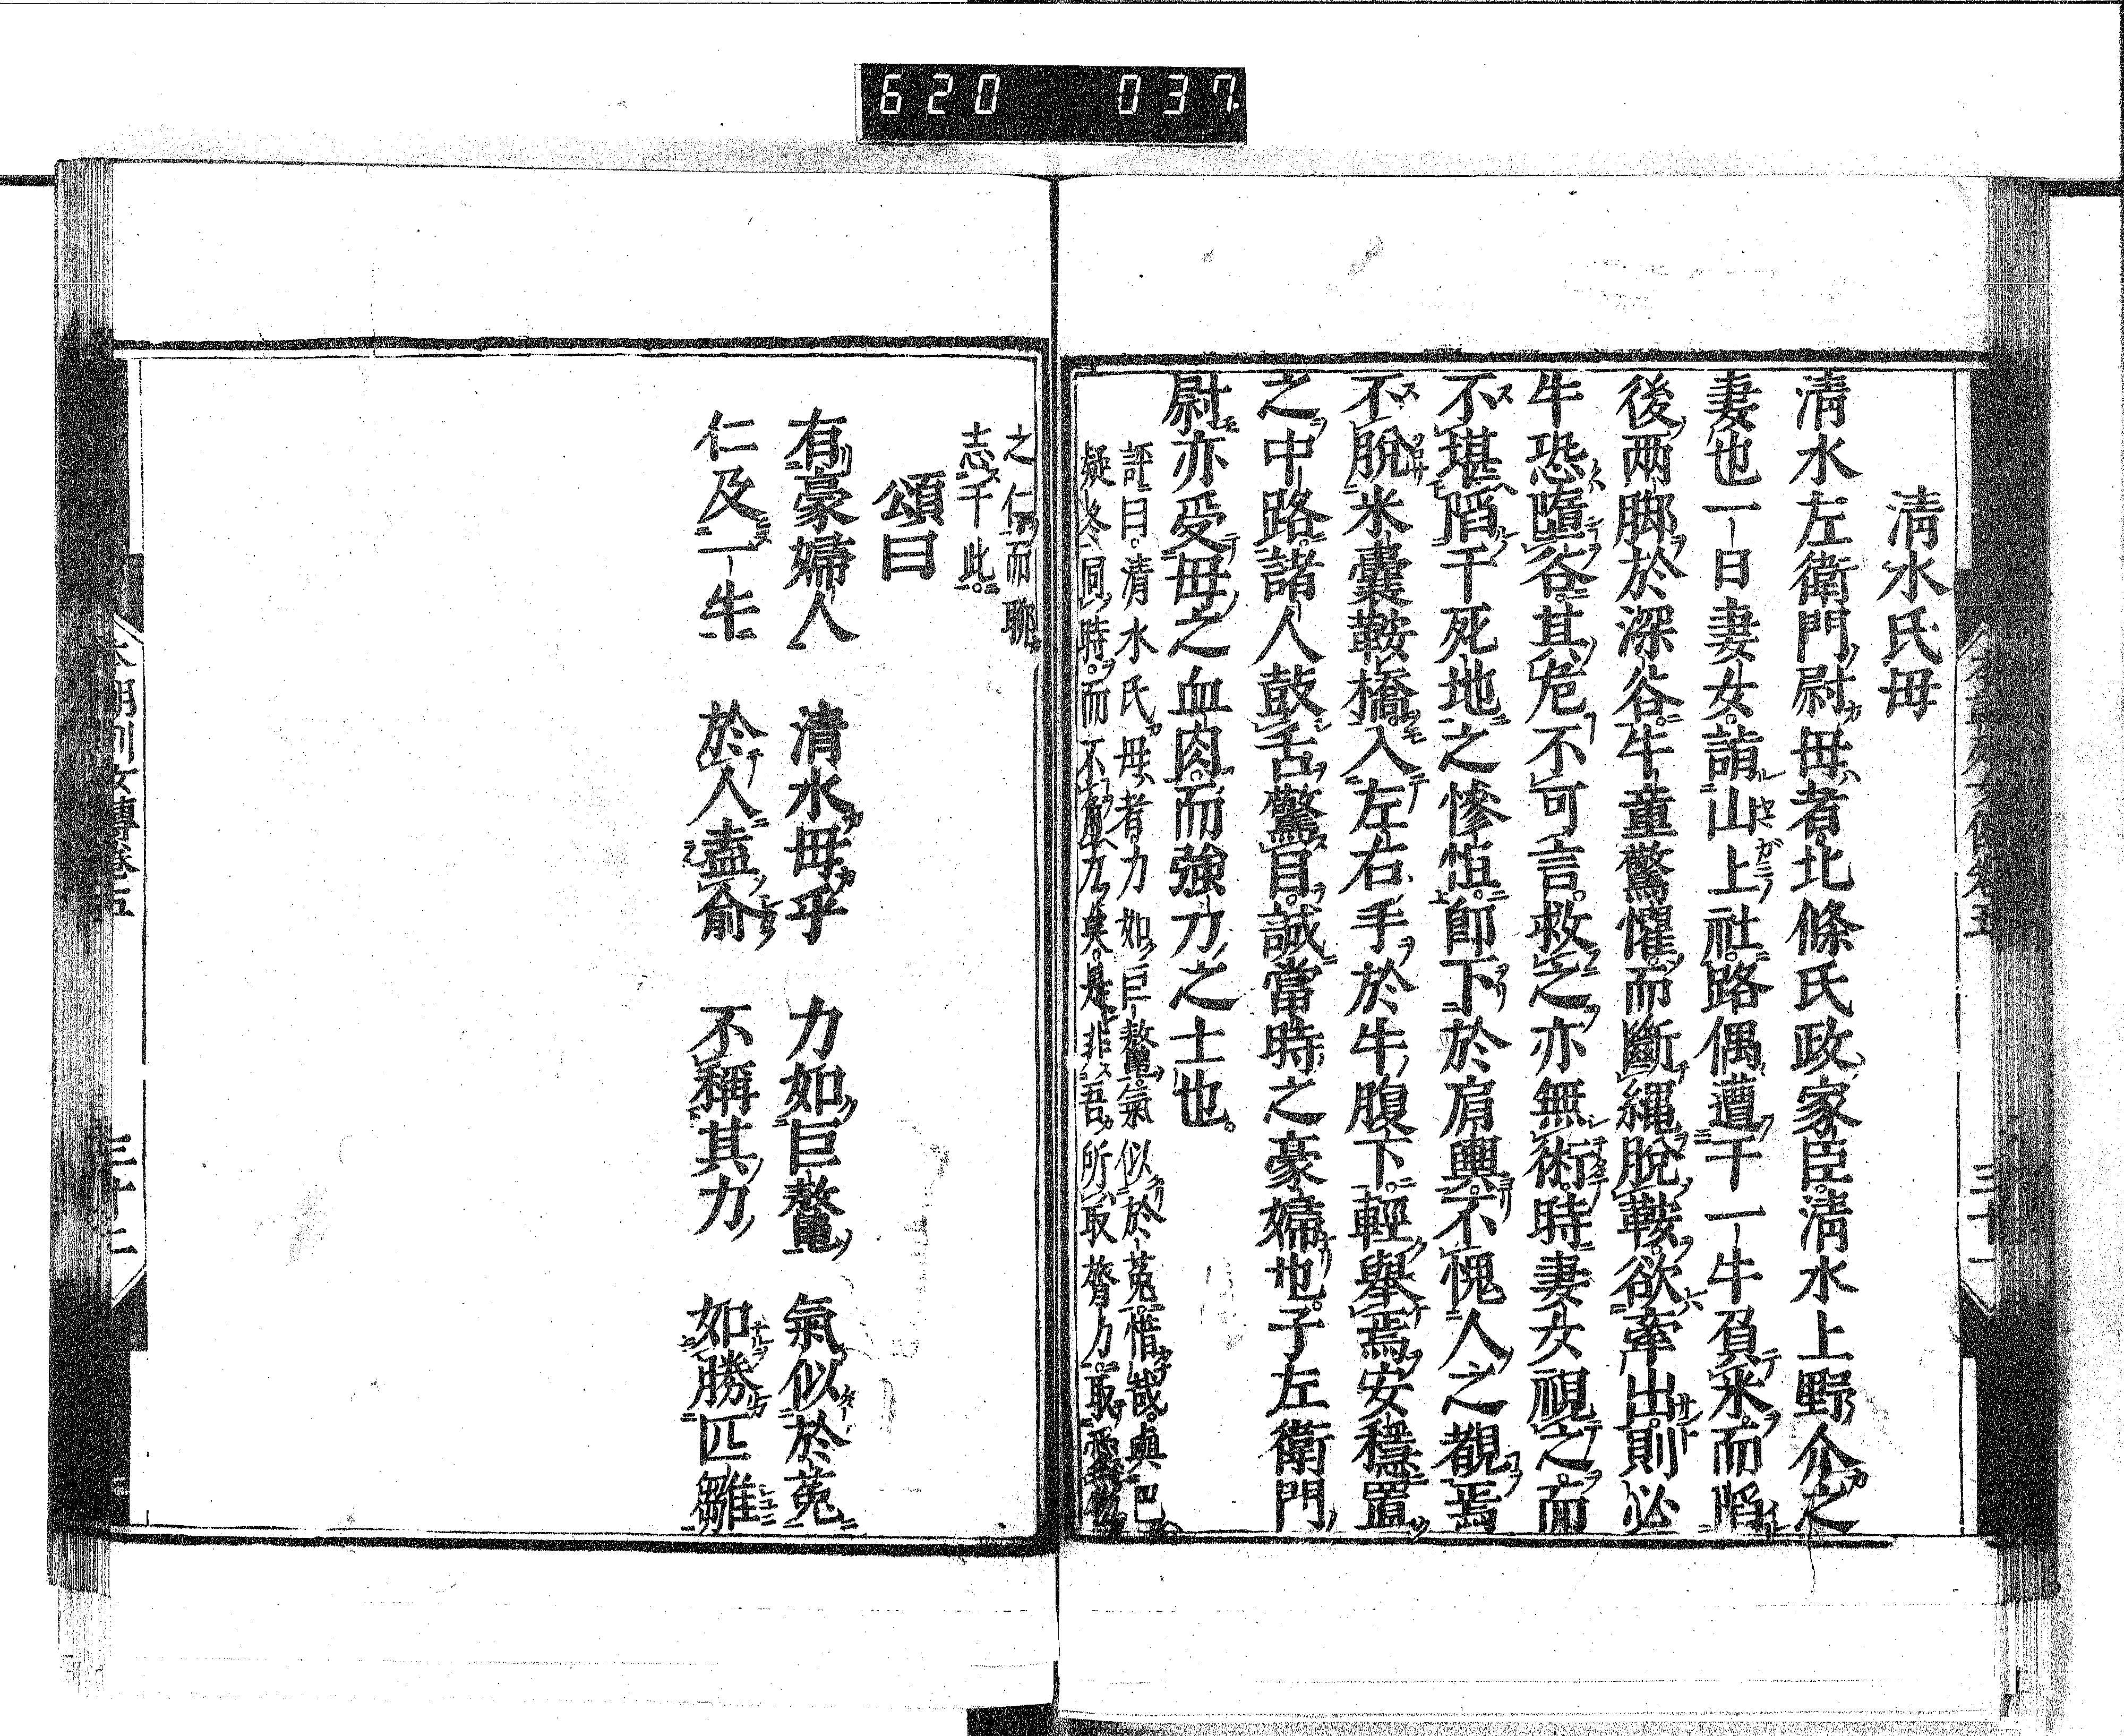 620 037
清水氏母
清水左衛門尉母者北條氏政家臣清水上野介之
妻也一日妻女詣山上社路偶遭于一牛負米而陷
後両脚於深谷牛童驚懼而斷繩脫鞍欲牽出則必
牛恐墮谷其危不可言救之亦無術時妻女視之而
不堪陷于死地之慘怛即下於肩輿不愧人之覩焉
不脫米嚢鞍橋入左右手於牛腹下輕舉焉安穩置
之中路諸人鼓舌驚目誠當時之豪婦也子左衛門
尉亦受母之血肉而強力之士也
評曰清水氏母者力如巨鼇氣似於菟惜哉與巴
疑終同時而不角力矣是非吾所取膂力取愛
之仁而聊
志于此
頌曰
有豪婦人 清水母乎 力如巨鼇 氣似於菟
仁及一牛 於人盍俞 不稱其力 如勝匹雛
本朝列女傳卷五
三十二